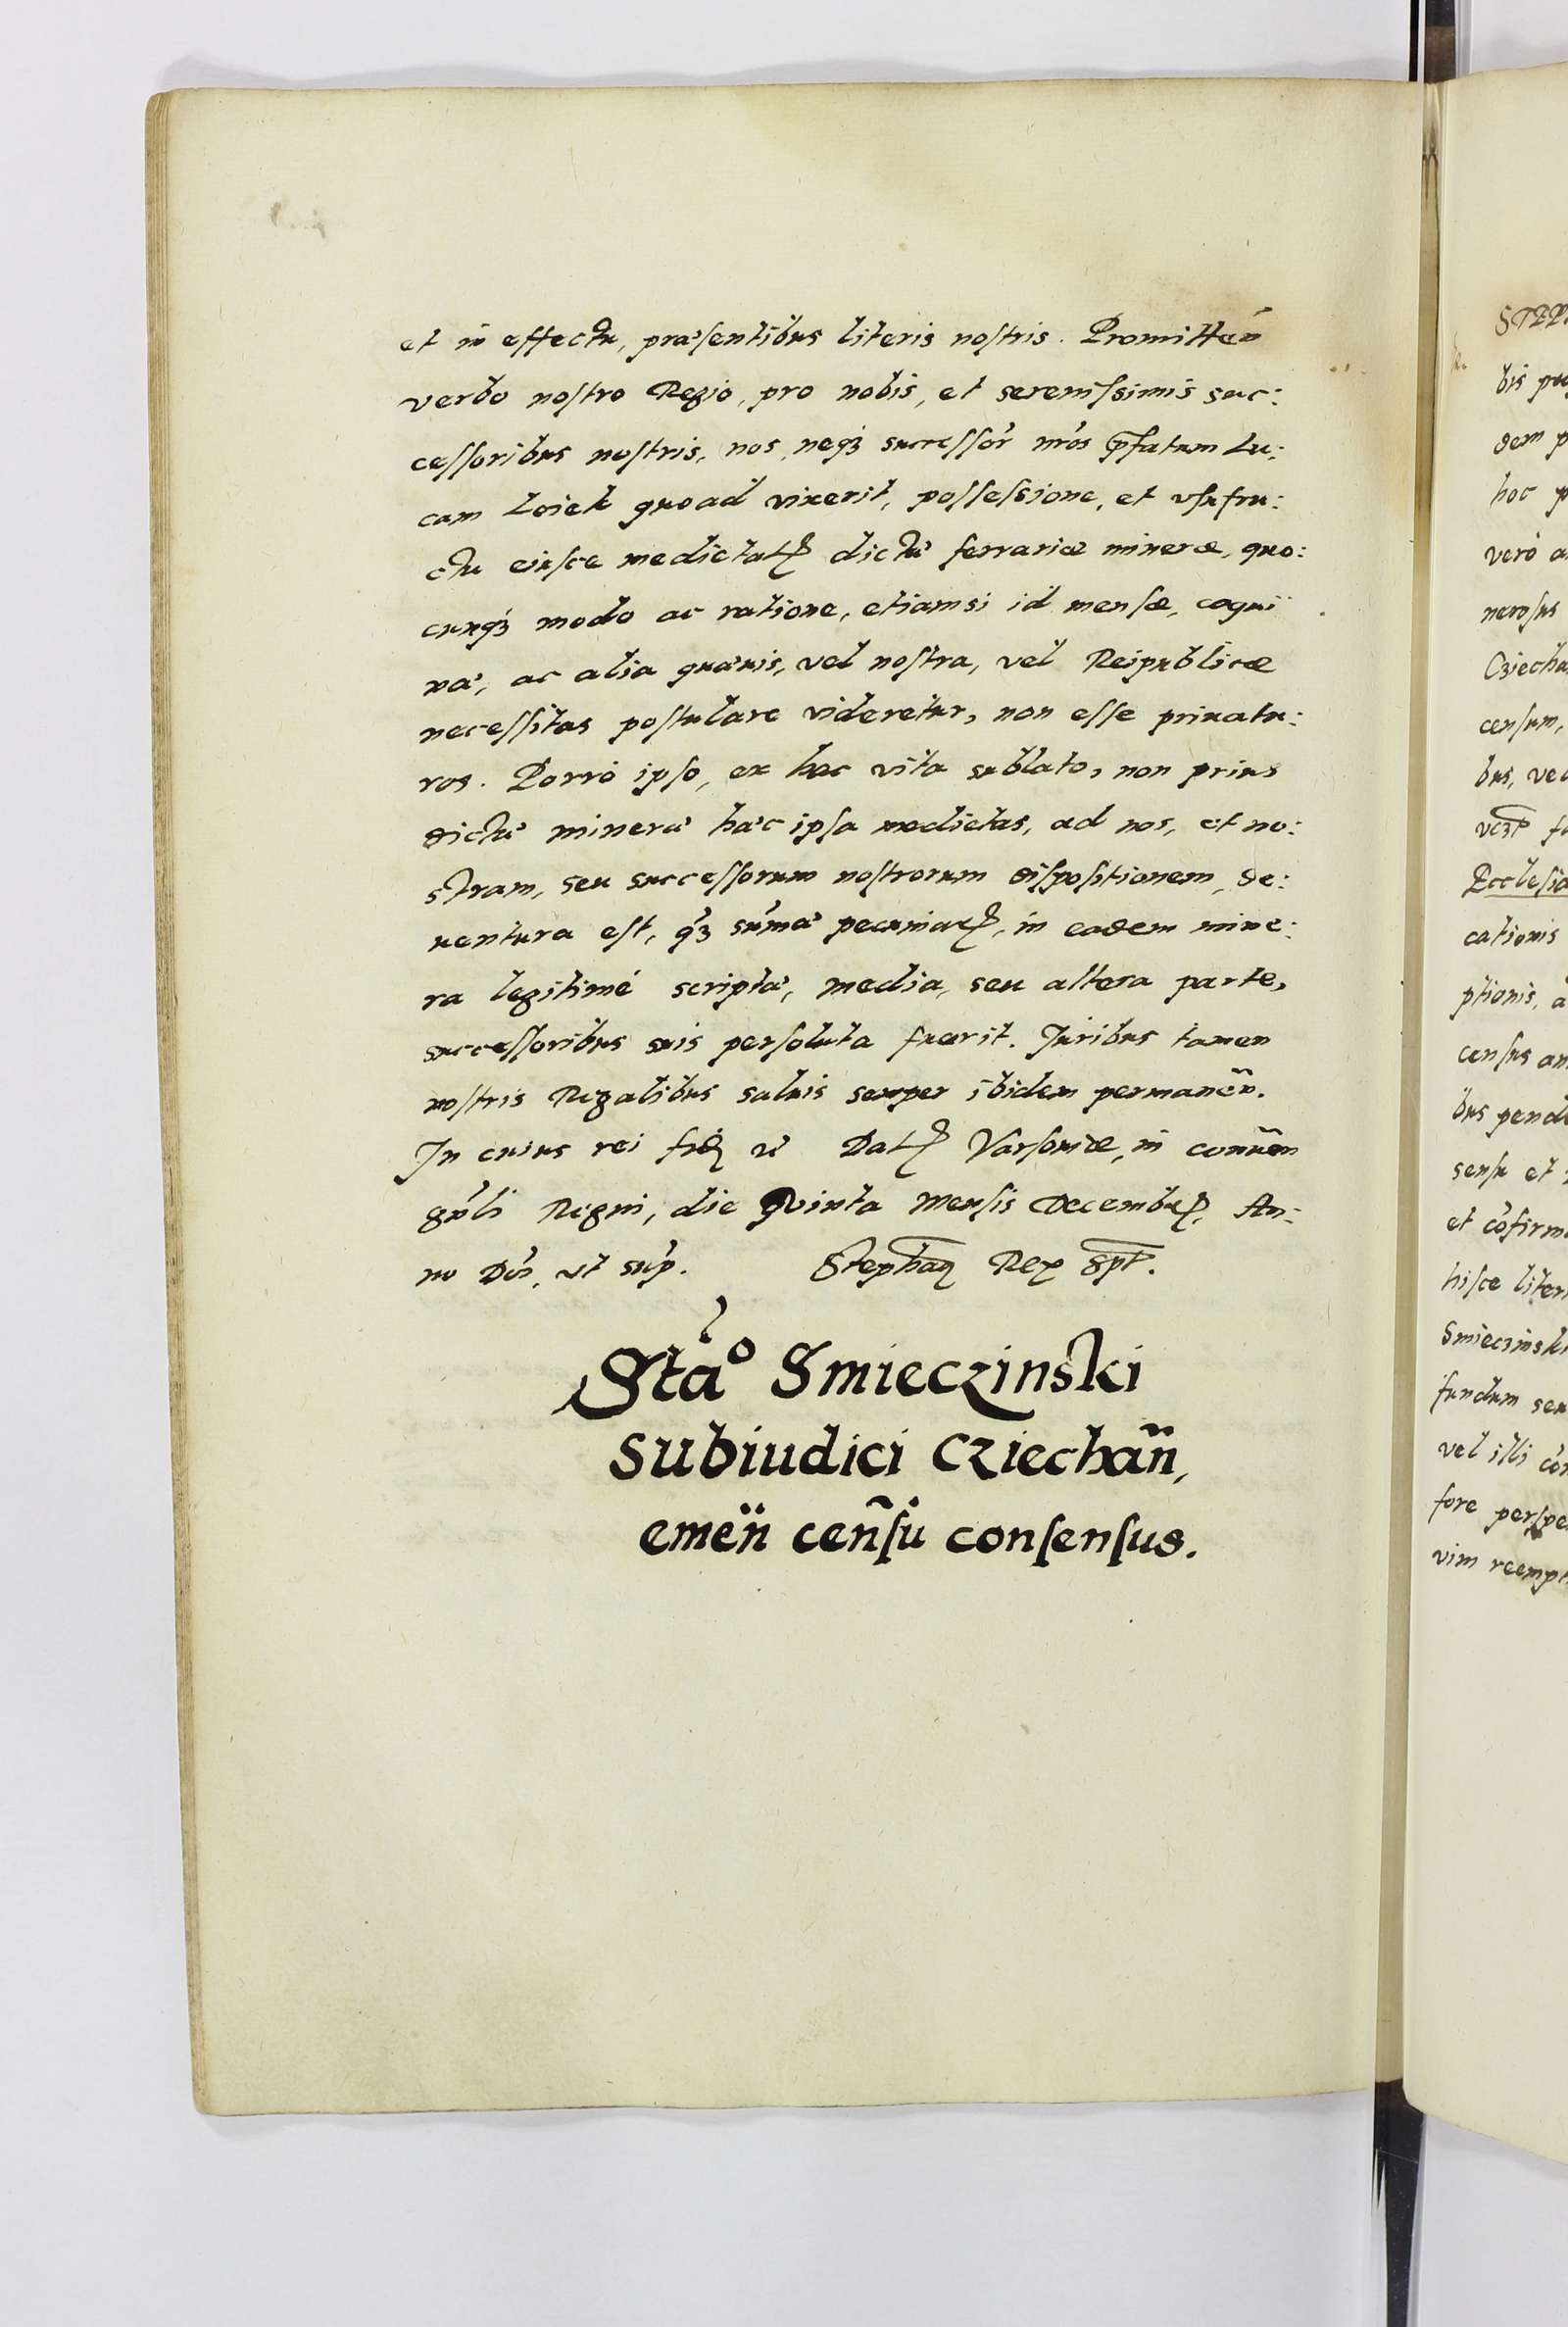 et in effectu, præsentibus literis nostris. Promitteñ
verbo nostro Regio, pro nobis, et serenissimis suc:
cessoribus nostris, nos, neqȝ successor̃ nr̃os p̃fatum Lu:
cam Loiek quoad vixerit, possessione, et vsufru:
ctu eiusce medietatꝭ dictæ ferrariæ mineræ, quo:
cunqȝ modo ac ratione, etiamsi id mensæ, coqui
næ, ac alia quæuis, vel nostra, vel Reipublicæ
necessitas postulare videretur, non esse priuatu:
ros. Porrò ipso, ex hac vita sublato, non prius
dictæ mineræ hæc ipsa medietas, ad nos, et no:
stram, seu successorum nostrorum dispositionem, de:
uentura est, q̃ȝ sum̃a pecuniarꝭ, in eadem mine:
ra legitimé scripta, media, seu altera parte,
successoribus suis persoluta fuerit. Juribus tamen
nostris Regalibus saluis semper ibidem permaneñ.
In cuius rei fidę Datꝭ Varsouiæ, in conuen
gñli Regni, die Quinta Mensis Decembrꝭ, An:
no Dñi, vt sup̃. Stephaꝰ Rex sp̃t.
Staᵒ Smieczinski
subiudici Cziechañ,
emeñ ceñsu consensus.
STEP
bis pu
dem p
hoc p
verò a
nerosus
Cziecha
censum,
bus, ve
fa
Ecclesia
cationis
ptionis, a
census an
bus pende
sensu et
et cõfirm
hisce liter
Smieczinski
fundum seu
vel illi cõ
fore perspe
vim reempt